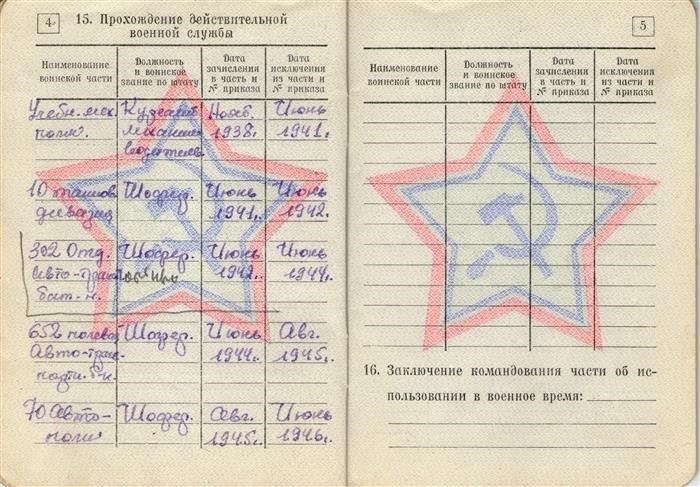 4
15. Прохождение действительной
военной службы
Наименование
воинской части
Должность
и воинское
звание по штату
Дата
зачисления
в часть и
№ приказа
Дата
исключения
из части и
№ приказа
Учебн.
полк.
механик
водитель
Нояб.
1938г.
Июнь
1941г.
10 танков
дивизия
Шофер.
Июнь
1941г.
Июнь
1942г.
302 Отд.
Авто-тран
бат-н.
Шофер.
Июнь
1942г.
Июнь
1944г.
652 полевой
Авто-тран
Шофер.
Июнь
1944г.
Авг.
1945г.
70 Авто-
полк
Шофер.
Авг.
1945г.
Июнь
1946г.
5
Наименование
воинской части
Должность
и воинское
звание по штату
Дата
зачисления
в часть и
№ приказа
Дата
исключения
из части и
№ приказа
16. Заключение командования части об ис-
пользовании в военное время: